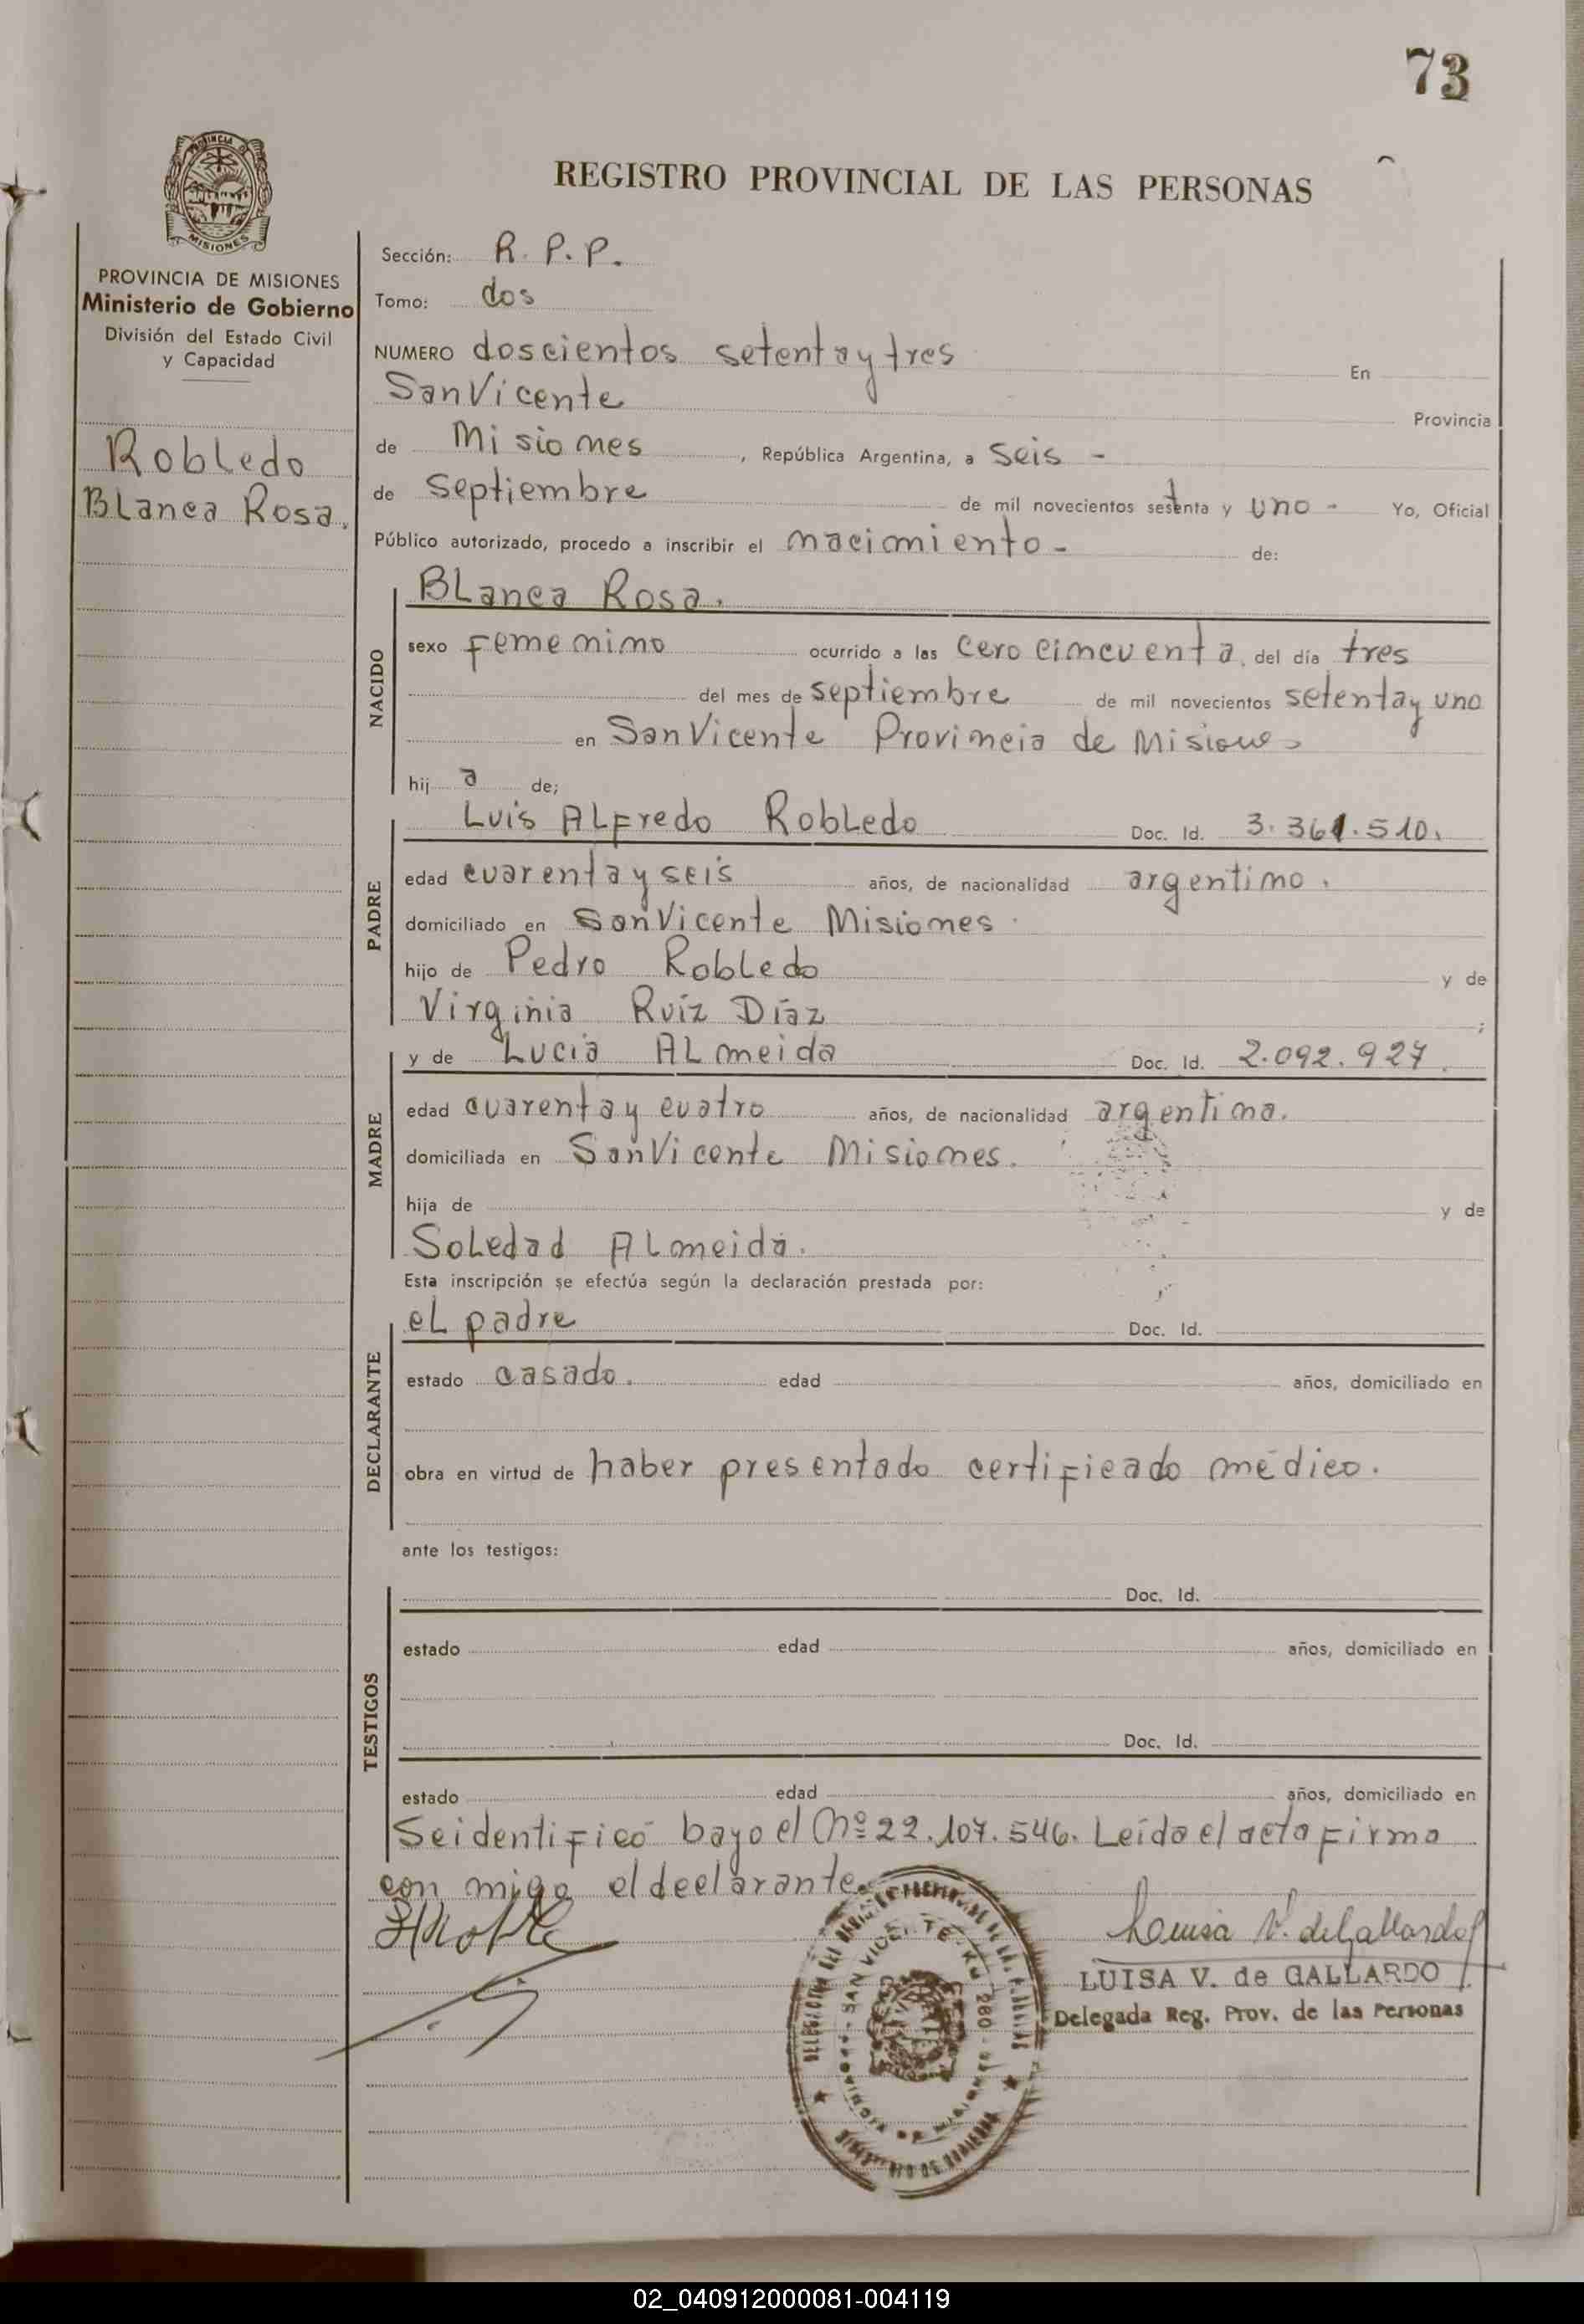 73
REGISTRO PROVINCIAL DE LAS PERSONAS
PROVINCIA
MISIONES
PROVINCIA DE MISIONES
Ministerio de Gobierno
División del Estado Civil
y Capacidad
Robledo
Blanca Rosa.
Sección: R. P. P.
Tomo: dos
NUMERO doscientos setenta y tres En
San Vicente Provincia
de Misiones, República Argentina, a seis -
de septiembre de mil novecientos setenta y uno - Yo, Oficial
Público autorizado, procedo a inscribir el nacimiento - de:
NACIDO
Blanca Rosa.
sexo femenino ocurrido a las cero cincuenta, del día tres
del mes de septiembre de mil novecientos setenta y uno
en San Vicente Provincia de Misiones
hij a de;
PADRE
Luis Alfredo Robledo Doc. Id. 3.361.510.
edad cuarenta y seis años, de nacionalidad argentino.
domiciliado en San Vicente Misiones
hijo de Pedro Robledo y de
Virginia Ruíz Díaz ;
MADRE
y de Lucia Almeida Doc. Id. 2.092.927.
edad cuarenta y cuatro años, de nacionalidad argentina.
domiciliada en San Vicente Misiones.
hija de y de
Soledad Almeida.
Esta inscripción se efectúa según la declaración prestada por:
DECLARANTE
el padre Doc. Id.
estado casado. edad años, domiciliado en
obra en virtud de haber presentado certificado médico.
ante los testigos:
TESTIGOS
Doc. Id.
estado edad años, domiciliado en
Doc. Id.
estado edad años, domiciliado en
Se identificó bayo el Nº 22.107.546. Leída el acta firma
con migo el declarante.
Louisa V. de Gallardo
LUISA V. de GALLARDO
Delegada Reg. Prov. de las Personas
SAN VICENTE
02_040912000081-004119